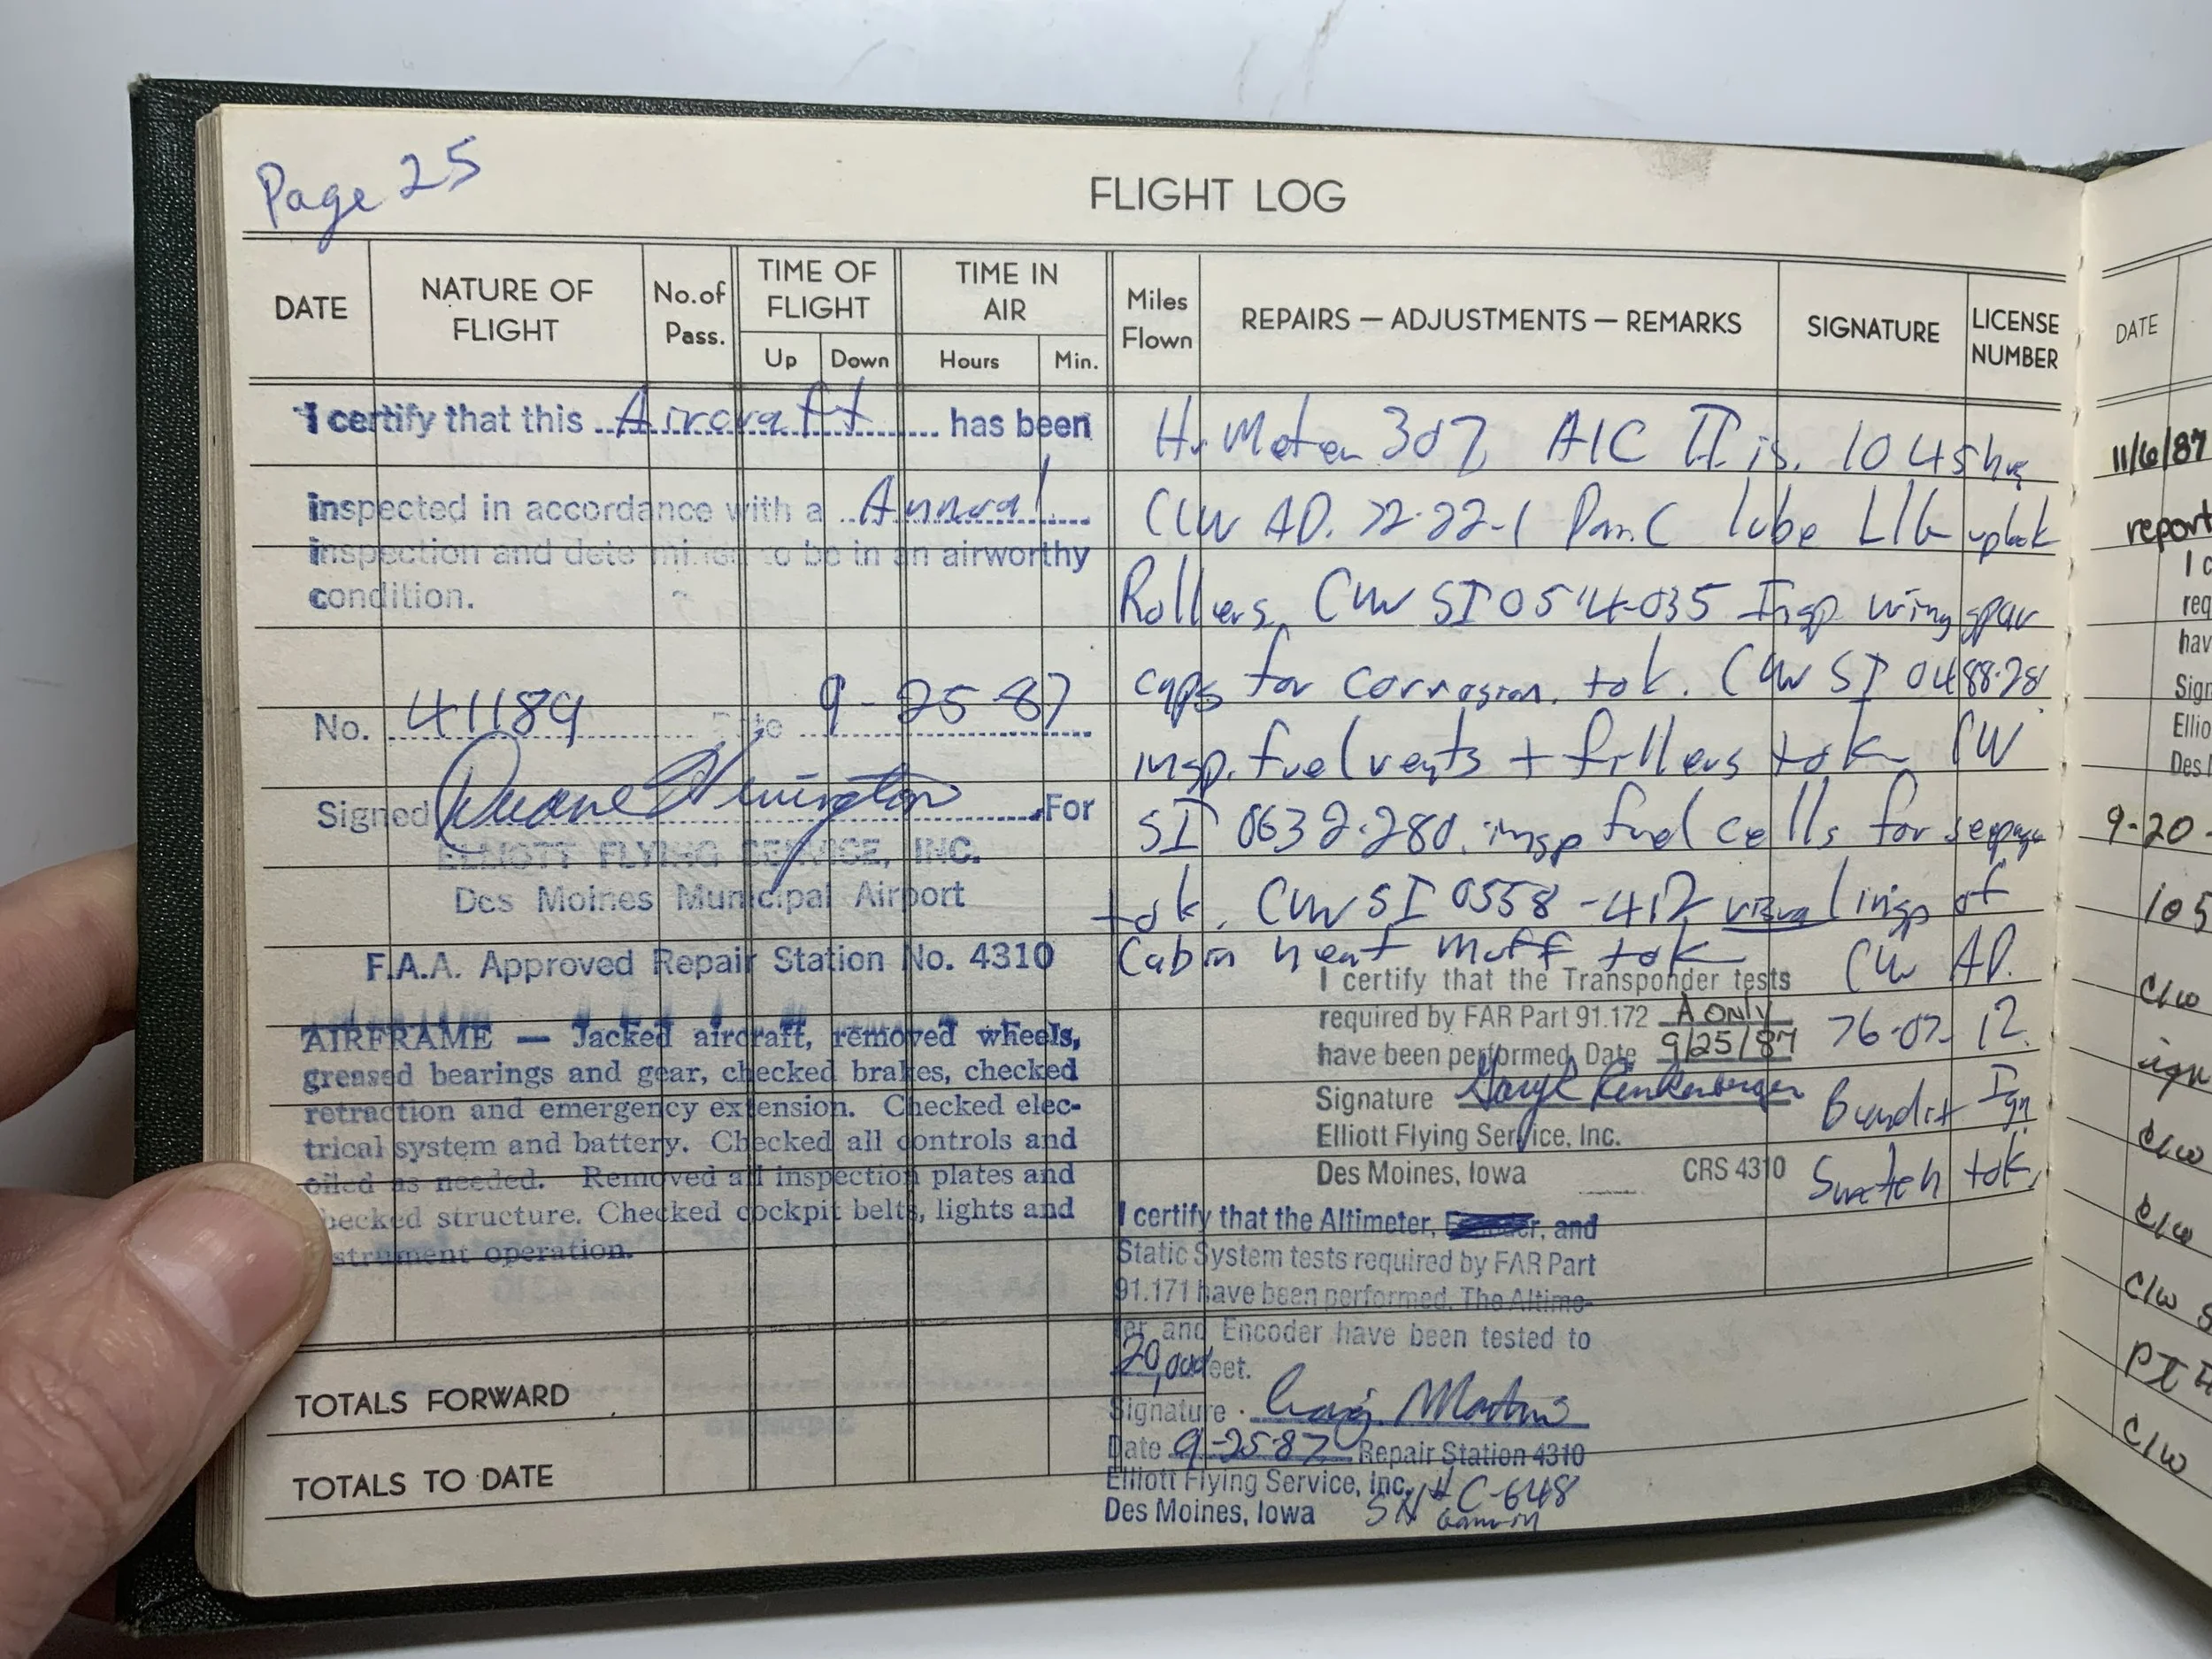 Page 25
FLIGHT LOG
DATE
NATURE OF FLIGHT
No. of Pass.
TIME OF FLIGHT
Up
Down
TIME IN AIR
Hours
Min.
Miles Flown
REPAIRS — ADJUSTMENTS — REMARKS
SIGNATURE
LICENSE NUMBER
I certify that this Aircraft has been
inspected in accordance with a Annual
inspection and determined to be in an airworthy
condition.
No. 41189 Date 9-25-87
Signed Duane For
ELLIOTT FLYING SERVICE, INC.
Des Moines Municipal Airport
F.A.A. Approved Repair Station No. 4310
AIRFRAME — Jacked aircraft, removed wheels,
greased bearings and gear, checked brakes, checked
retraction and emergency extension. Checked elec-
trical system and battery. Checked all controls and
oiled as needed. Removed all inspection plates and
checked structure. Checked cockpit belts, lights and
strument operation.
TOTALS FORWARD
TOTALS TO DATE
Hr Meter 307 A/C TT is 1045 hrs
C/W AD. 72-22-1 Par. C lube L/G uplock
Rollers. C/W SI 0514-035 Insp wing spar
caps for corrosion. tok. C/W SI 0488-28
insp. fuel vents + fillers tok CW
SI 0632-280. insp fuel cells for seepage
tok. C/W SI 0558-412 visual insp of
Cabin heat muff tok CW AD.
76-07-12
Bendix Ign
Switch tok.
I certify that the Transponder tests
required by FAR Part 91.172 A ONLY
have been performed. Date 9/25/87
Signature
Elliott Flying Service, Inc.
Des Moines, Iowa CRS 4310
I certify that the Altimeter, and
Static System tests required by FAR Part
91.171 have been performed. The Altime-
ter and Encoder have been tested to
20,000 feet.
Signature Craig
Date 9-25-87 Repair Station 4310
Elliott Flying Service, Inc.
Des Moines, Iowa SN# C-648
DATE
11/6/87
report
I c
req
hav
Sign
Ellio
Des
9-20-
105
C/W
sign
C/W
C/W
C/W S
C/W